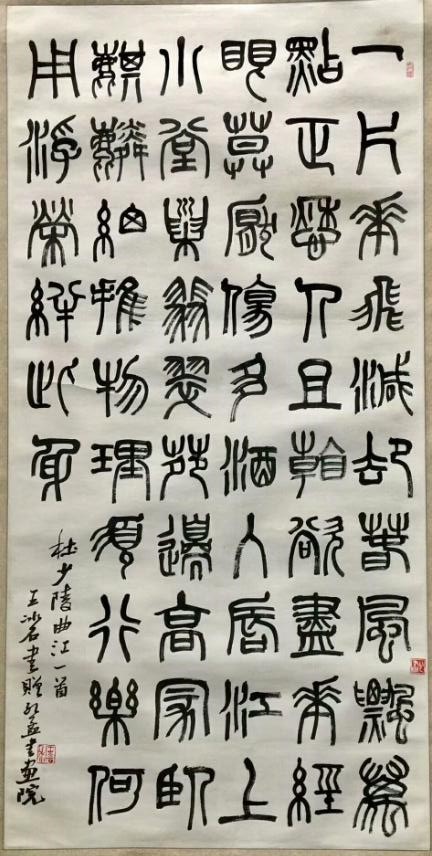 一片華飛減却春風飄萬
點正愁人且看欲盡華經
眼莫厭傷多酒入唇江上
小堂巢翡翠苑邊高冢臥
麒麟細推物理須行樂何
用浮榮絆此身
杜少陵曲江一首
王書贈書畫院